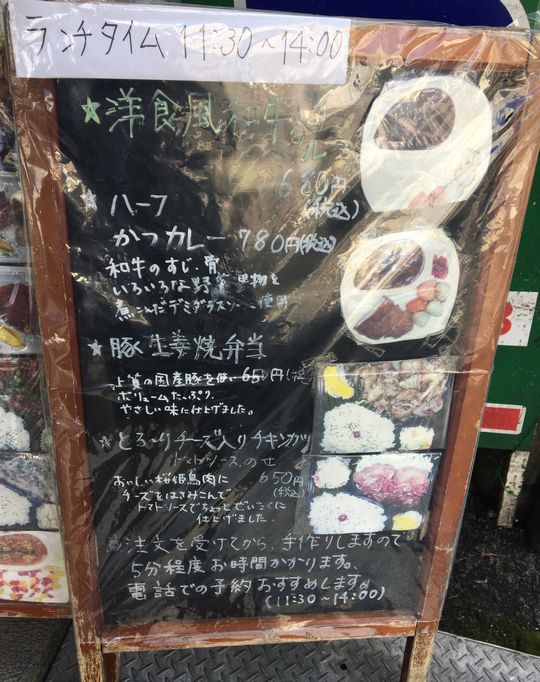 ランチタイム 11:30~14:00
★洋食風和牛カレー
680円
(税込)
★ハーフ
かつカレー 780円(税込)
和牛のすじ、骨
いろいろな野菜、果物を
煮こんだデミグラスソース使用
★豚生姜焼弁当
上質の国産豚を使い 650円(税
ボリュームたっぷり、
やさしい味に仕上げました。
☆とろ~りチーズ入りチキンカツ
トマトソースのせ
おいしい桜姫鳥肉に 650円
チーズをはさみこんで (税込)
トマトソースでちょっとどいっこくに
仕上げました
注文を受けてから、手作りしますので
5分程度お時間かかります。
電話での予約おすすめします。
(11:30~14:00)